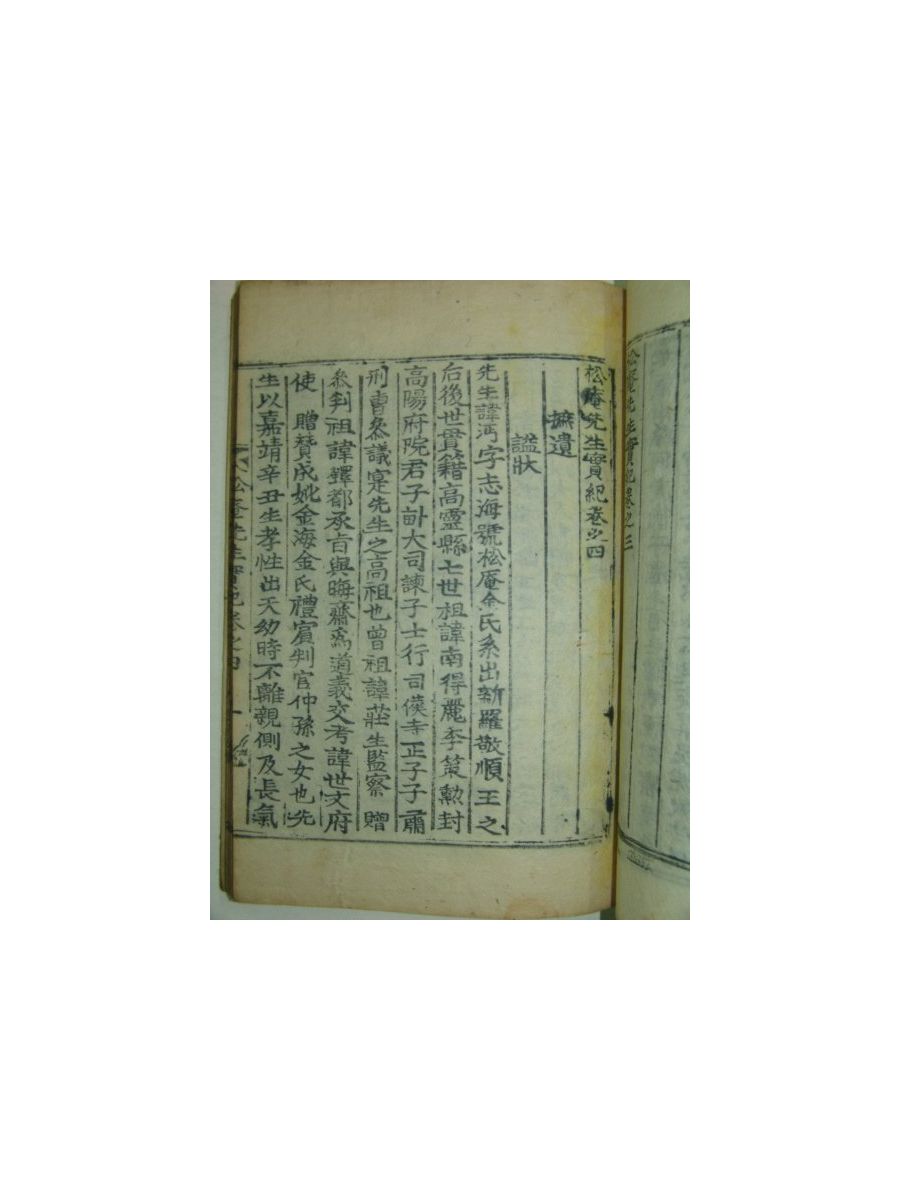 松庵先生實紀卷之三
松庵先生實紀卷之四
摭遺
諡狀
先生諱沔字志海號松庵金氏系出新羅敬順王之
后後世貫籍高靈縣七世祖諱南得麗季策勳封
高陽府院君子訃大司諫子士行司僕寺正子子肅
刑曹叅議寔先生之高祖也曾祖諱莊生監察 贈
叅判祖諱鐸都承旨與晦齋爲道義交考諱世文府
使 贈贊成妣金海金氏禮賓判官仲孫之女也先
生以嘉靖辛丑生孝性出天幼時不離親側及長氣
松庵先生實紀卷之四 一